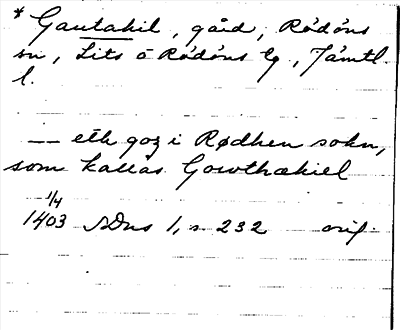 * Gautakil, gård, Rödöns
sn, Lits o Rödöns tg, Jämtl.
l.
— eth goz i Rødhen sokn,
som kallas Gowthækiel
1/4
1403 SDns 1, s 232 orig.